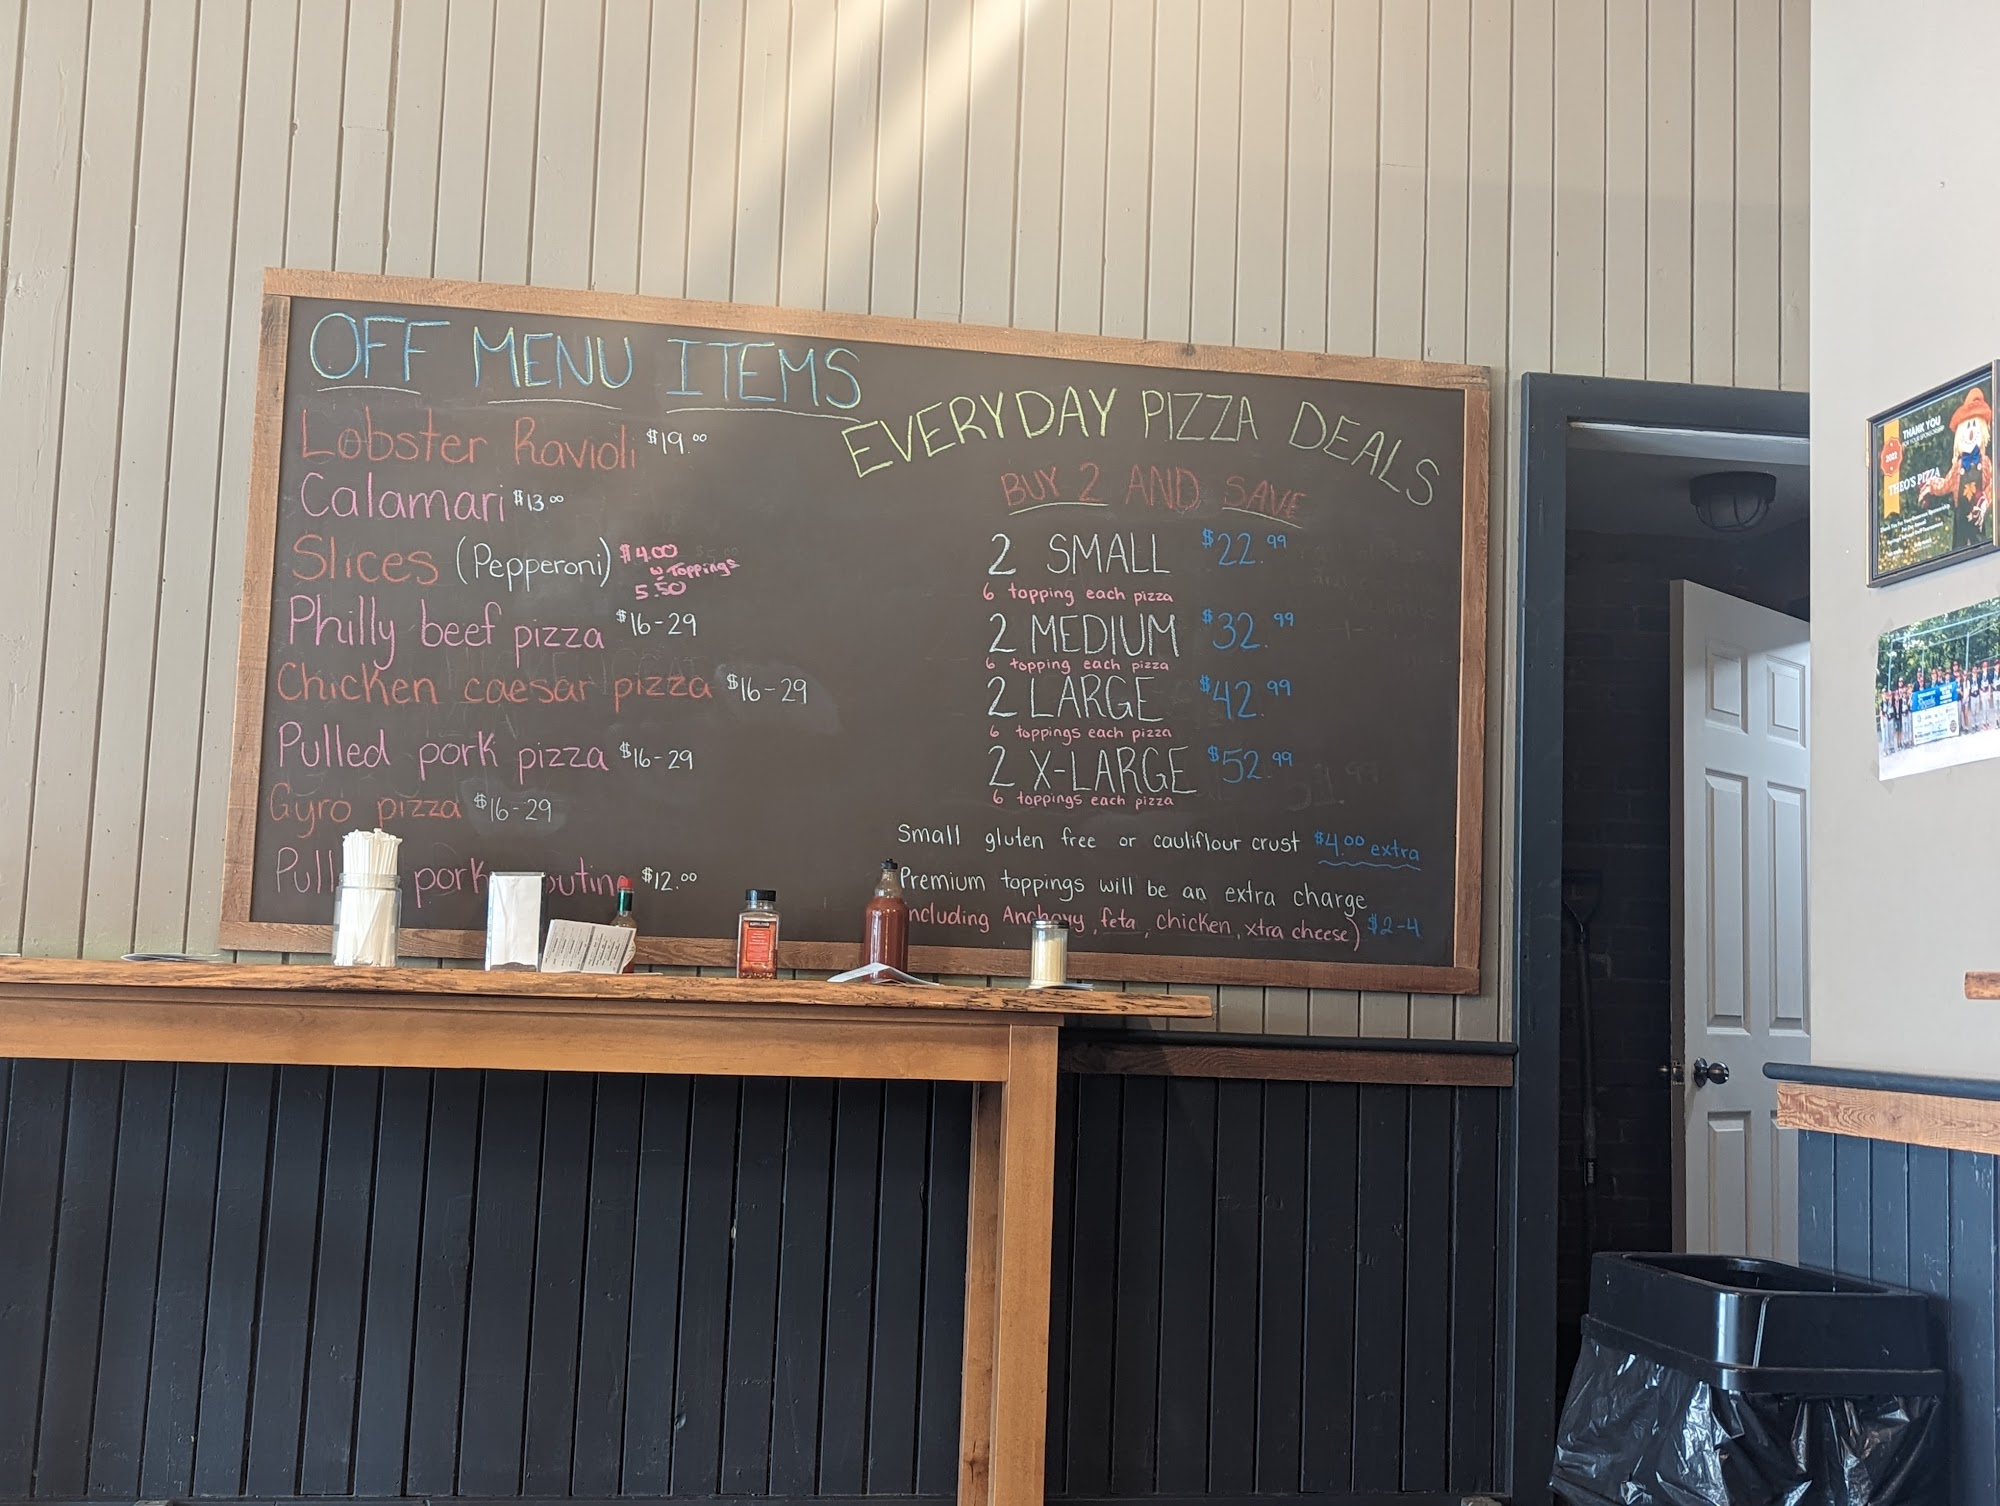 OFF MENU ITEMS
Lobster Ravioli $19.00
Calamari $13.00
Slices (Pepperoni) $4.00
w Toppings
5.50
Philly beef pizza $16-29
Chicken caesar pizza $16-29
Pulled pork pizza $16-29
Gyro pizza $16-29
pork $12.00
EVERYDAY PIZZA DEALS
BUY 2 AND SAVE
2 SMALL $22.99
6 topping each pizza
2 MEDIUM $32.99
6 topping each pizza
2 LARGE $42.99
6 toppings each pizza
2 X-LARGE $52.99
6 toppings each pizza
Small gluten free or cauliflour crust $4.00 extra
Premium toppings will be an extra charge
including Anchovy, feta, chicken, xtra cheese) $2-4
THANK YOU
FOR YOUR SPONSORSHIP
2022
THEO'S PIZZA